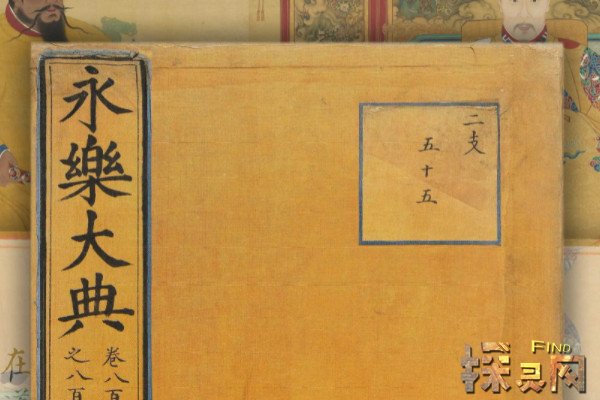 永樂大典
卷八百
之八百
二支
五十五
在
FIND
探灵网